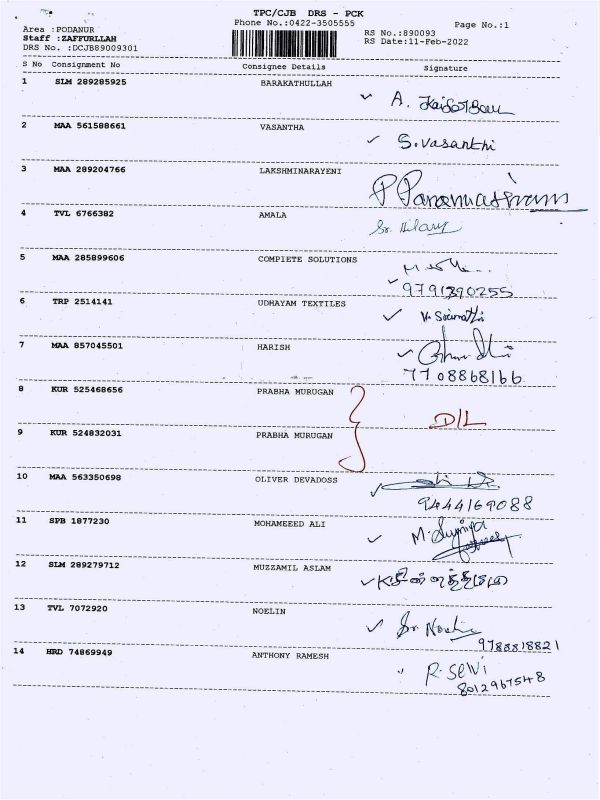 TPC/CJB DRS - PCK
Phone No.:0422-3505555
Page No.:1
Area :PODANUR
RS No.:890093
Staff :ZAFFURLLAH
RS Date:11-Feb-2022
DRS No. :DCJB89009301
S No Consignment No Consignee Details Signature
1 SLM 289285925 BARAKATHULLAH
A.
2 MAA 561588661 VASANTHA
S.Vasanthi
3 MAA 289204766 LAKSHMINARAYENI
P
4 TVL 6766382 AMALA
Sr. Hilary
5 MAA 285899606 COMPIETE SOLUTIONS
9791390255
6 TRP 2514141 UDHAYAM TEXTILES
7 MAA 857045501 HARISH
7708868166
8 KUR 525468656 PRABHA MURUGAN
D/L
9 KUR 524832031 PRABHA MURUGAN
10 MAA 563350698 OLIVER DEVADOSS
9444169088
11 SPB 1877230 MOHAMEEED ALI
12 SLM 289279712 MUZZAMIL ASLAM
13 TVL 7072920 NOELIN
Sr Noelin
9788818821
14 HRD 74869949 ANTHONY RAMESH
R. Selvi
8012967548